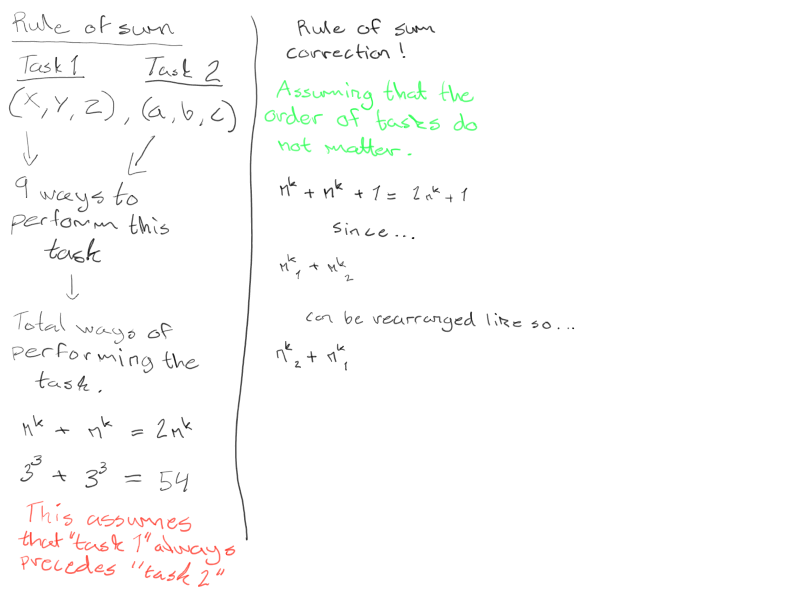 Rule of sum
Task 1 Task 2
(X, Y, Z), (a, b, c)
9 ways to
perform this
task
Total ways of
performing the
task.
n^k + n^k = 2n^k
3^3 + 3^3 = 54
This assumes
that "task 1" always
precedes "task 2"
Rule of sum
correction!
Assuming that the
order of tasks do
not matter.
n^k + n^k + 1 = 2n^k + 1
since...
n^k_1 + n^k_2
can be rearranged like so...
n^k_2 + n^k_1